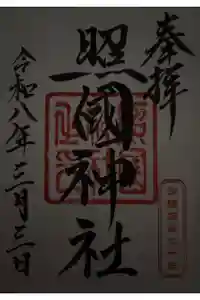 奉拝
照國神社
令和八年三月三日